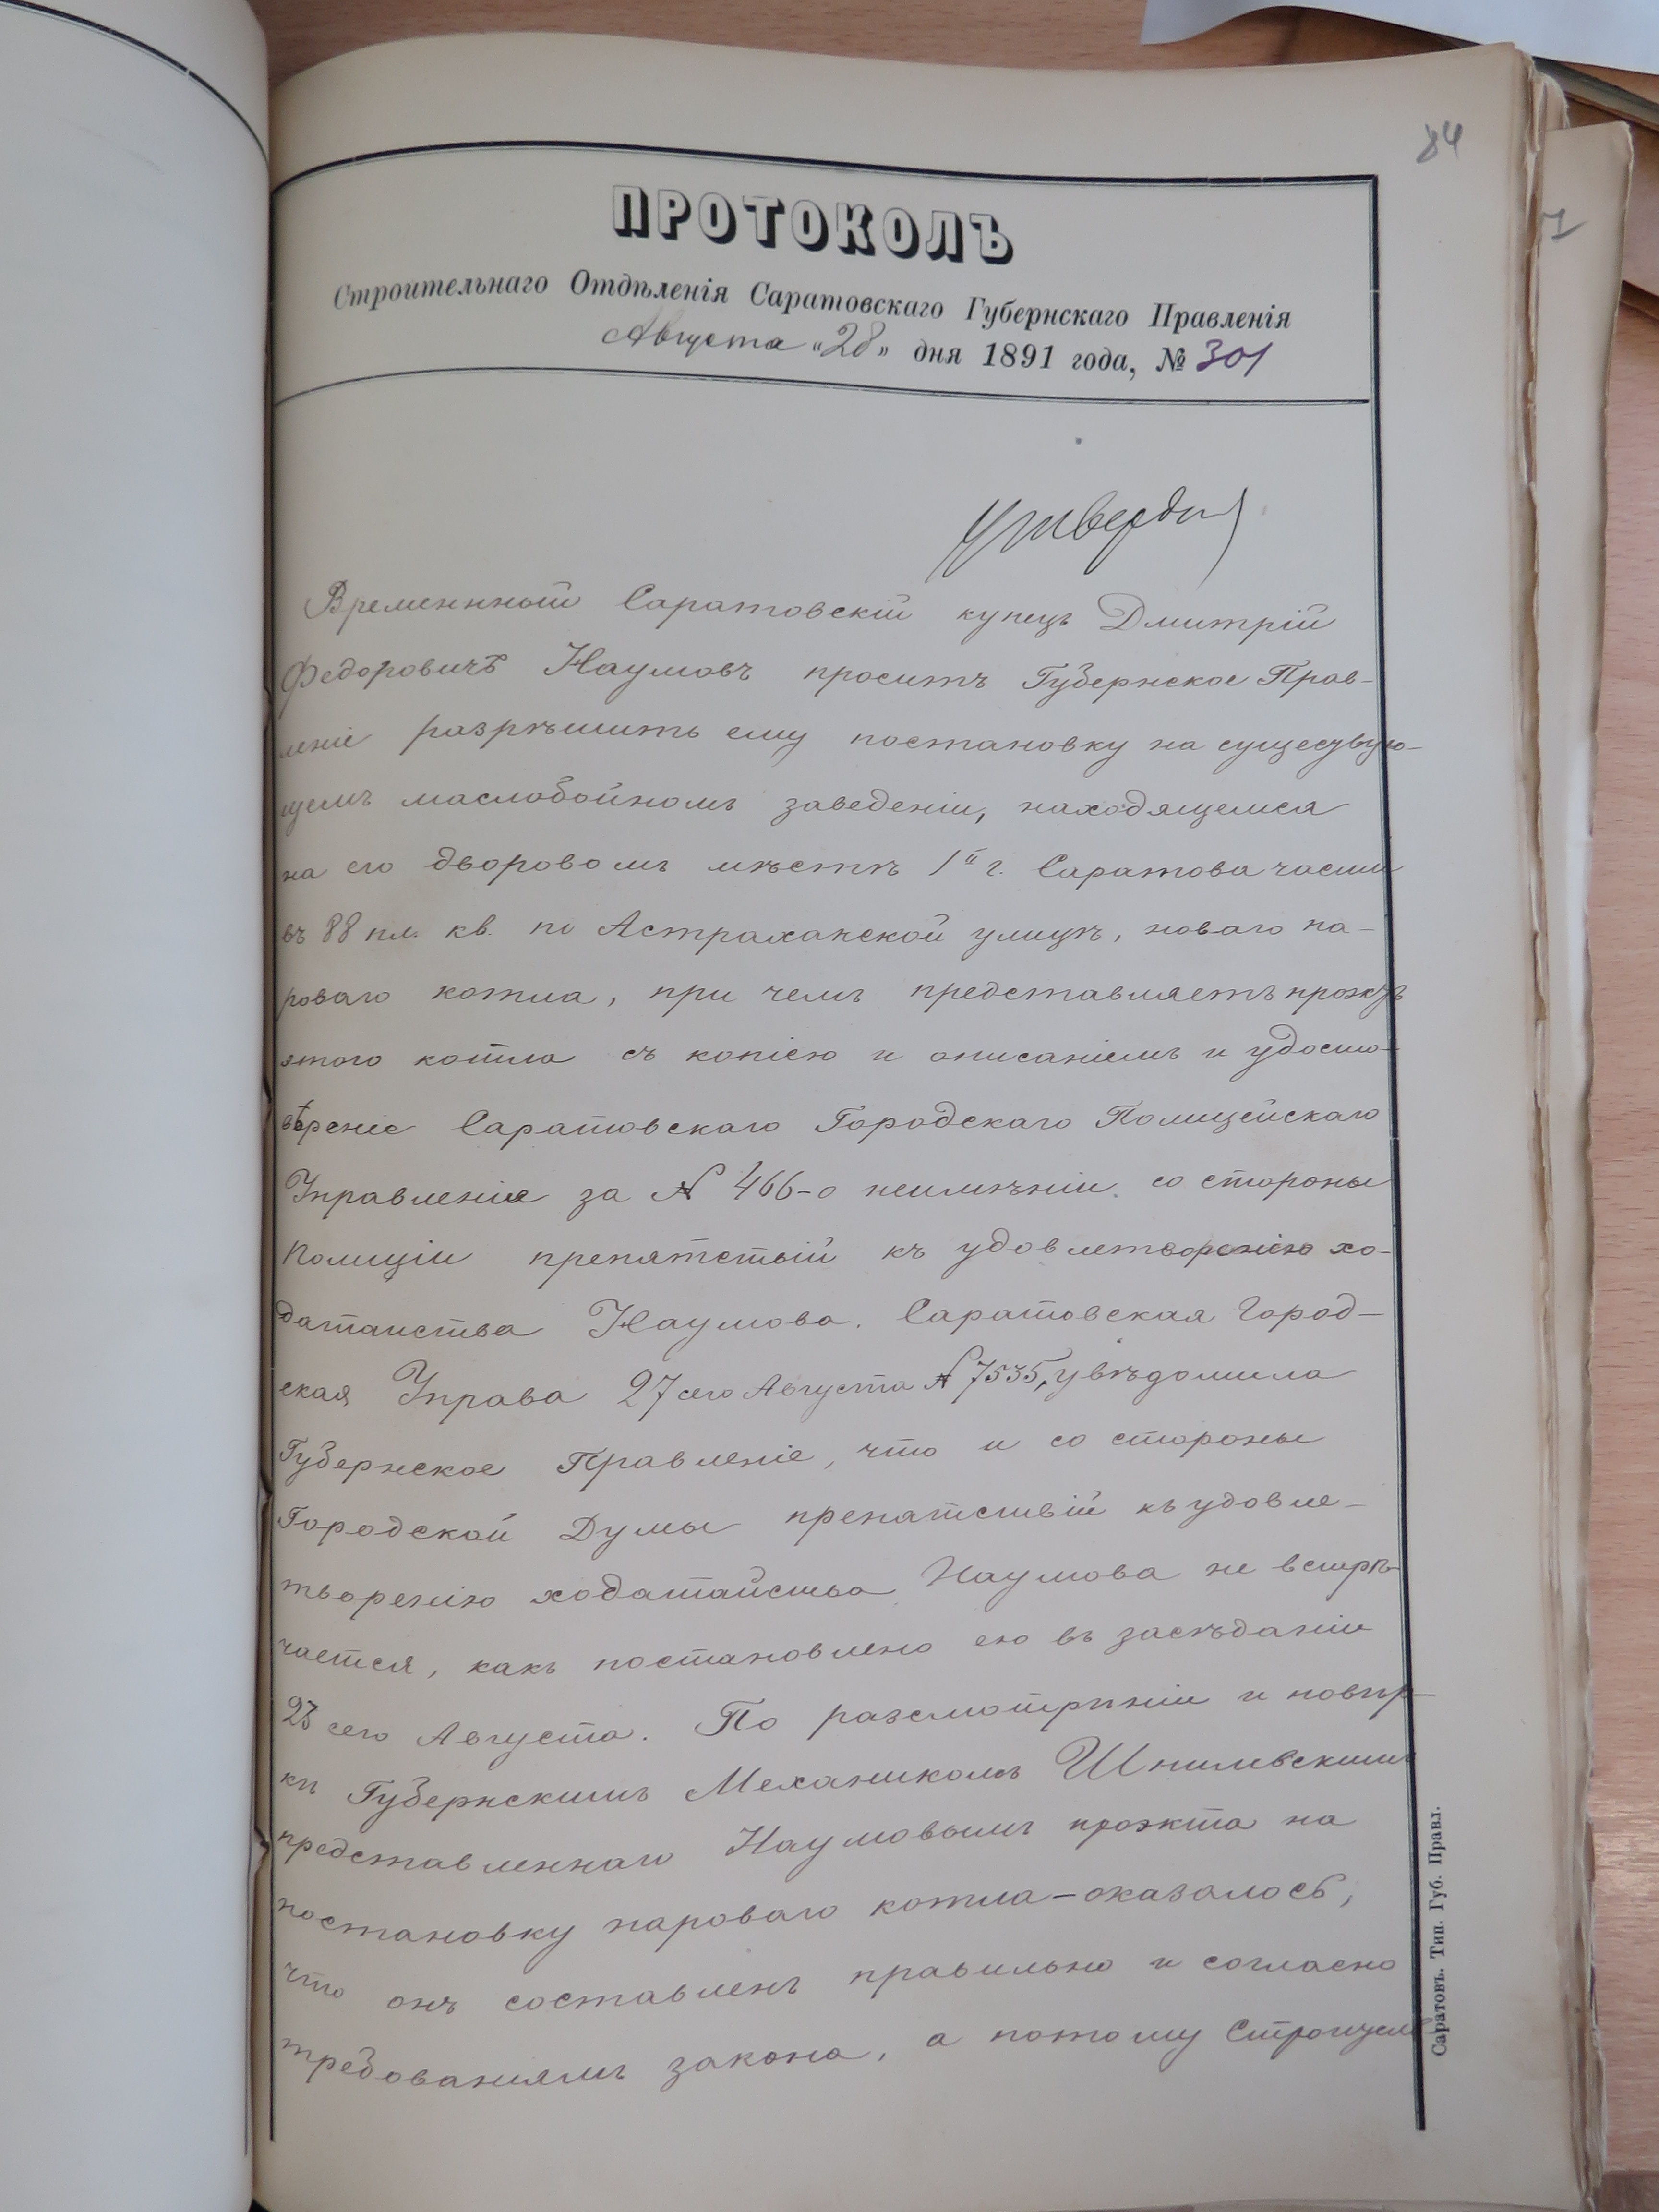 84
ПРОТОКОЛЪ
Строительнаго Отдѣленія Саратовскаго Губернскаго Правленія
Августа „28" дня 1891 года, № 301
Утверди
Временнный Саратовскій купецъ Дмитрій
Федоровичъ Наумовъ проситъ Губернское Прав-
леніе разрѣшить ему постановку на существую-
щемъ маслобойномъ заведеніи, находящемся
на его дворовомъ мѣстѣ 1й г. Саратова части
въ 88 пл. кв. по Астраханской улицѣ, новаго па-
роваго котла, при чемъ представляетъ проэктъ
этого котла съ копіею и описаніемъ и удосто-
вѣреніе Саратовскаго Городскаго Полицейскаго
Управленія за № 466-о неимѣніи со стороны
Полиціи препятстый къ удовлетворенію хо-
датаиства Наумова. Саратовская Город-
ская Управа 27 сего Августа № 7535, увѣдомила
Губернское Правленіе, что и со стороны
Городской Думы препятствій къ удовле-
творенію ходатайства Наумова не встрѣ-
чается, какъ постановлено ею въ засѣданіи
23 сего Августа. По разсмотрѣніи и повѣр-
кѣ Губернскимъ Механикомъ Шпилевскимъ
представленнаго Наумовымъ проэкта на
постановку пароваго котла-оказалось,
что онъ составленъ правильно и согласно
требованіямъ закона, а потому Строител
Саратовъ. Тип. Губ. Правл.